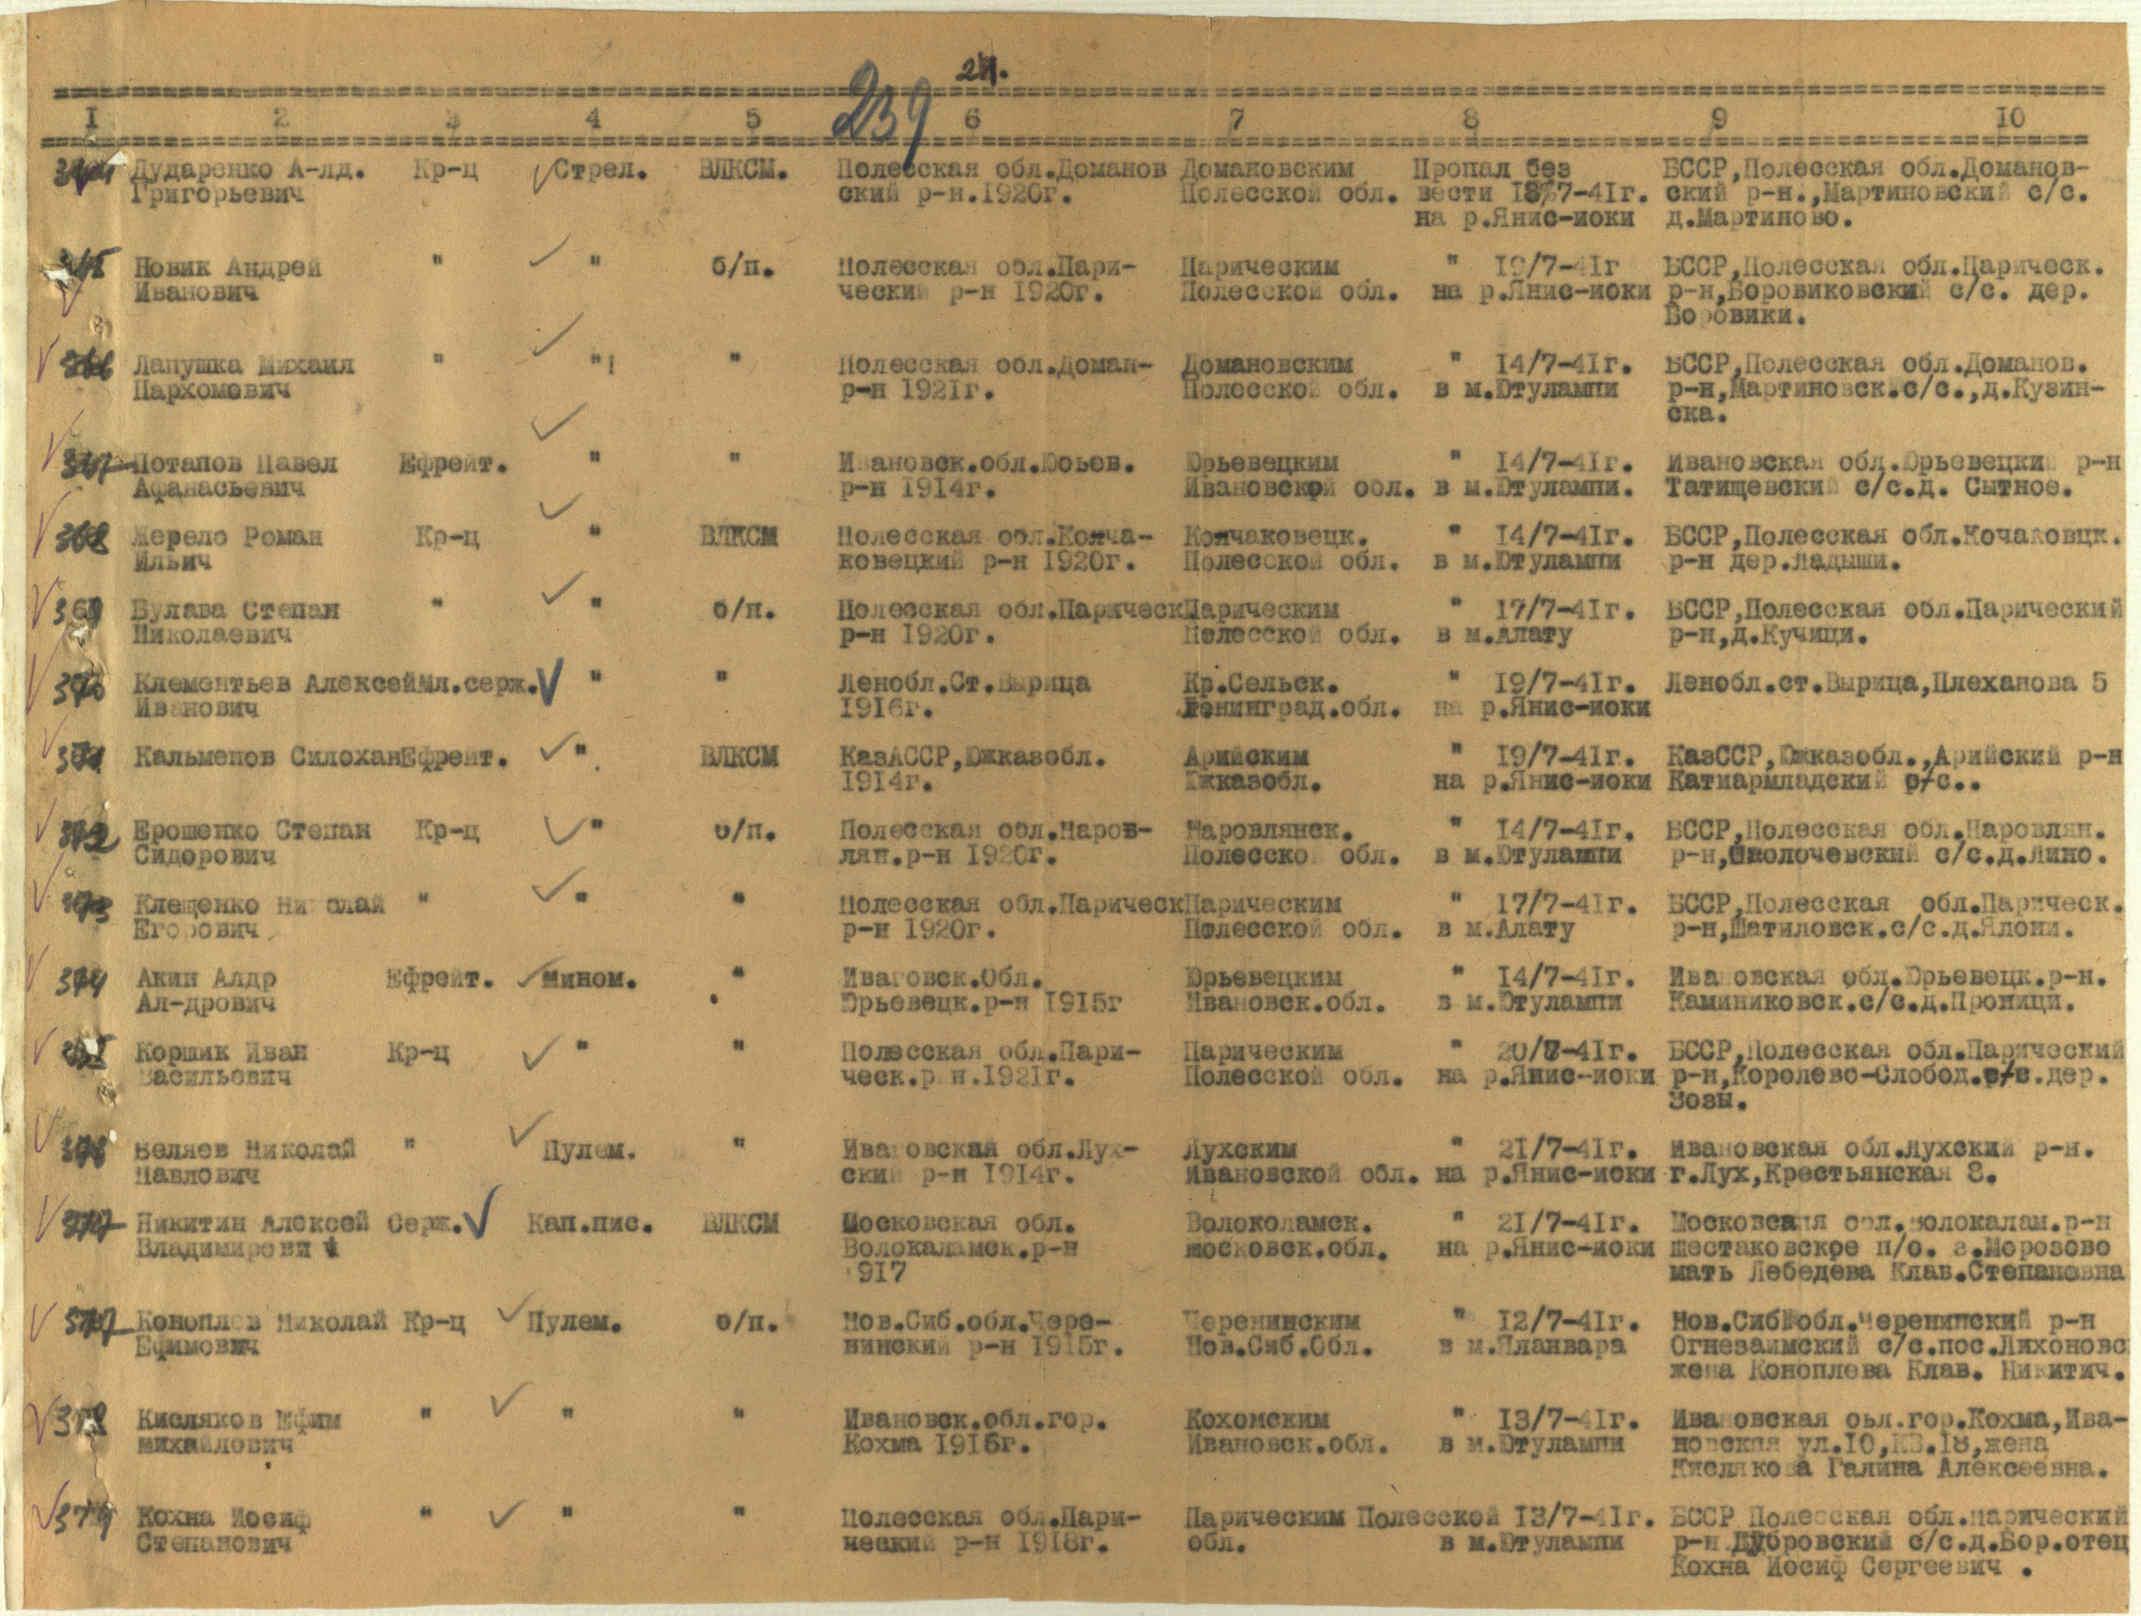 24.
239
1 2 3 4 5 6 7 8 9 10
364 Дударенко А-лд. Кр-ц Стрел. ВЛКСМ. Полесская обл.Доманов Домановским Пропал без БССР,Полесская обл.Доманов-
Григорьевич ский р-н.1920г. Полесской обл. вести 18/7-41г. ский р-н.,Мартиновский с/с.
на р.Янис-иоки д.Мартиново.
Новик Андрей " " б/п. Полесская обл.Пари- Парическим " 19/7-41г БССР,Полесская обл.Парическ.
Иванович ческий р-н 1920г. Полесской обл. на р.Янис-иоки р-н,Боровиковский с/с. дер.
Боровики.
366 Лапушка Михаил " " " Полесская обл.Доман- Домановским " 14/7-41г. БССР,Полесская обл.Доманов.
Пархомович р-н 1921г. Полесской обл. в м.Ютулампи р-н,Мартиновск.с/с.,д.Кузин-
ска.
367 Потапов Павел Ефрейт. " " Ивановск.обл.Юрьев. Юрьевецким " 14/7-41г. Ивановская обл.Юрьевецкий р-н
Афанасьевич р-н 1914г. Ивановской обл. в м.Ютулампи. Татищевский с/с.д. Сытное.
368 Жерело Роман Кр-ц " ВЛКСМ Полесская обл.Копча- Копчаковецк. " 14/7-41г. БССР,Полесская обл.Кочаковцк.
Ильич ковецкий р-н 1920г. Полесской обл. в м.Ютулампи р-н дер.Ладыши.
369 Булава Степан " " б/п. Полесская обл.Парическ Парическим " 17/7-41г. БССР,Полесская обл.Парический
Николаевич р-н 1920г. Полесской обл. в м.Алату р-н,д.Кучици.
370 Клементьев Алексей Мл.серж. " " Ленобл.Ст.Вырица Кр.Сельск. " 19/7-41г. Ленобл.ст.Вырица,Плеханова 5
Иванович 1916г. Ленинград.обл. на р.Янис-иоки
371 Кальменов Силохан Ефрейт. " ВЛКСМ КазАССР,Южказобл. Арийским " 19/7-41г. КазССР,Южказобл.,Арийский р-н
1914г. Южказобл. на р.Янис-иоки Катиармпадский с/с..
372 Ерошенко Степан Кр-ц " б/п. Полесская обл.Наров- Наровлянск. " 14/7-41г. БССР,Полесская обл.Наровлян.
Сидорович лян.р-н 1920г. Полесской обл. в м.Ютулампи р-н, с/с.д.Лино.
373 Клещенко Николай " " " Полесская обл.Парическ Парическим " 17/7-41г. БССР,Полесская обл.Парическ.
Егорович р-н 1920г. Полесской обл. в м.Алату р-н,Шатиловск.с/с.д.Япони.
374 Акин Алдр Ефрейт. Мином. " Ивановск.обл. Юрьевецким " 14/7-41г. Ивановская обл.Юрьевецк.р-н.
Ал-дрович Юрьевецк.р-н 1915г Ивановск.обл. в м.Ютулампи Каминиковск.с/с.д.Проници.
375 Коршик Иван Кр-ц " " Полесская обл.Пари- Парическим " 20/7-41г. БССР,Полесская обл.Парический
Васильевич ческ.р-н.1921г. Полесской обл. на р.Янис-иоки р-н,Королево-Слобод.с/с.дер.
Зозы.
376 Беляев Николай " Пулем. " Ивановская обл.Лух- Лухским " 21/7-41г. Ивановская обл.Лухский р-н.
Павлович ский р-н 1914г. Ивановской обл. на р.Янис-иоки г.Лух,Крестьянская 8.
377 Никитин Алексей Серж. Кап.пис. ВЛКСМ Московская обл. Волоколамск. " 21/7-41г. Московская обл.Волокалам.р-н
Владимирович Волокаламск.р-н Московск.обл. на р.Янис-иоки Шестаковское п/о. з.Морозово
917 мать Лебедева Клав.Степановна
377 Коноплев Николай Кр-ц Пулем. б/п. Нов.Сиб.обл.Чере- Черенинским " 12/7-41г. Нов.Сиб.обл.Черенинский р-н
Ефимович нинский р-н 1915г. Нов.Сиб.Обл. в м.Яланвара Огнезаимский с/с.пос.Лихоновс
жена Коноплева Клав. Никитич.
378 Кисляков Ефим " " " Ивановск.обл.гор. Кохомским " 13/7-41г. Ивановская обл.гор.Кохма,Ива-
Михайлович Кохма 1915г. Ивановск.обл. в м.Ютулампи новская ул.10,кв.18,жена
Кислякова Галина Алексеевна.
379 Кохна Иосиф " " " Полесская обл.Пари- Парическим Полесской 13/7-41г. БССР Полесская обл.Парический
Степанович ческий р-н 1918г. обл. в м.Ютулампи р-н Дубровский с/с.д.Бор.отец
Кохна Иосиф Сергеевич .